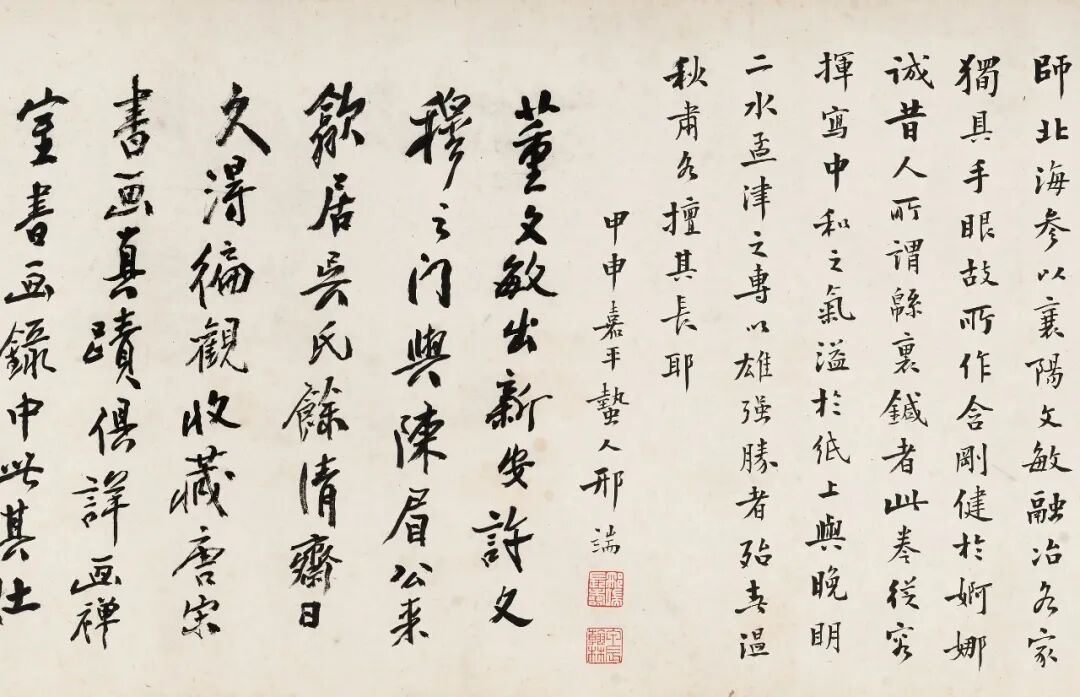 師北海參以襄陽文敏融冶各家
獨具手眼故所作含剛健於婀娜
誠昔人所謂緜裏鍼者此卷從容
揮寫中和之氣溢於紙上與晚明
二水孟津之專以雄强勝者殆春溫
秋肅各擅其長耶
甲申嘉平蟄人邢端
董文敏出新安許文
穆之門與陳眉公来
歙居吳氏餘清齋日
久得徧觀收藏唐宋
書画真蹟俱詳画禅
室書画錄中此其仕